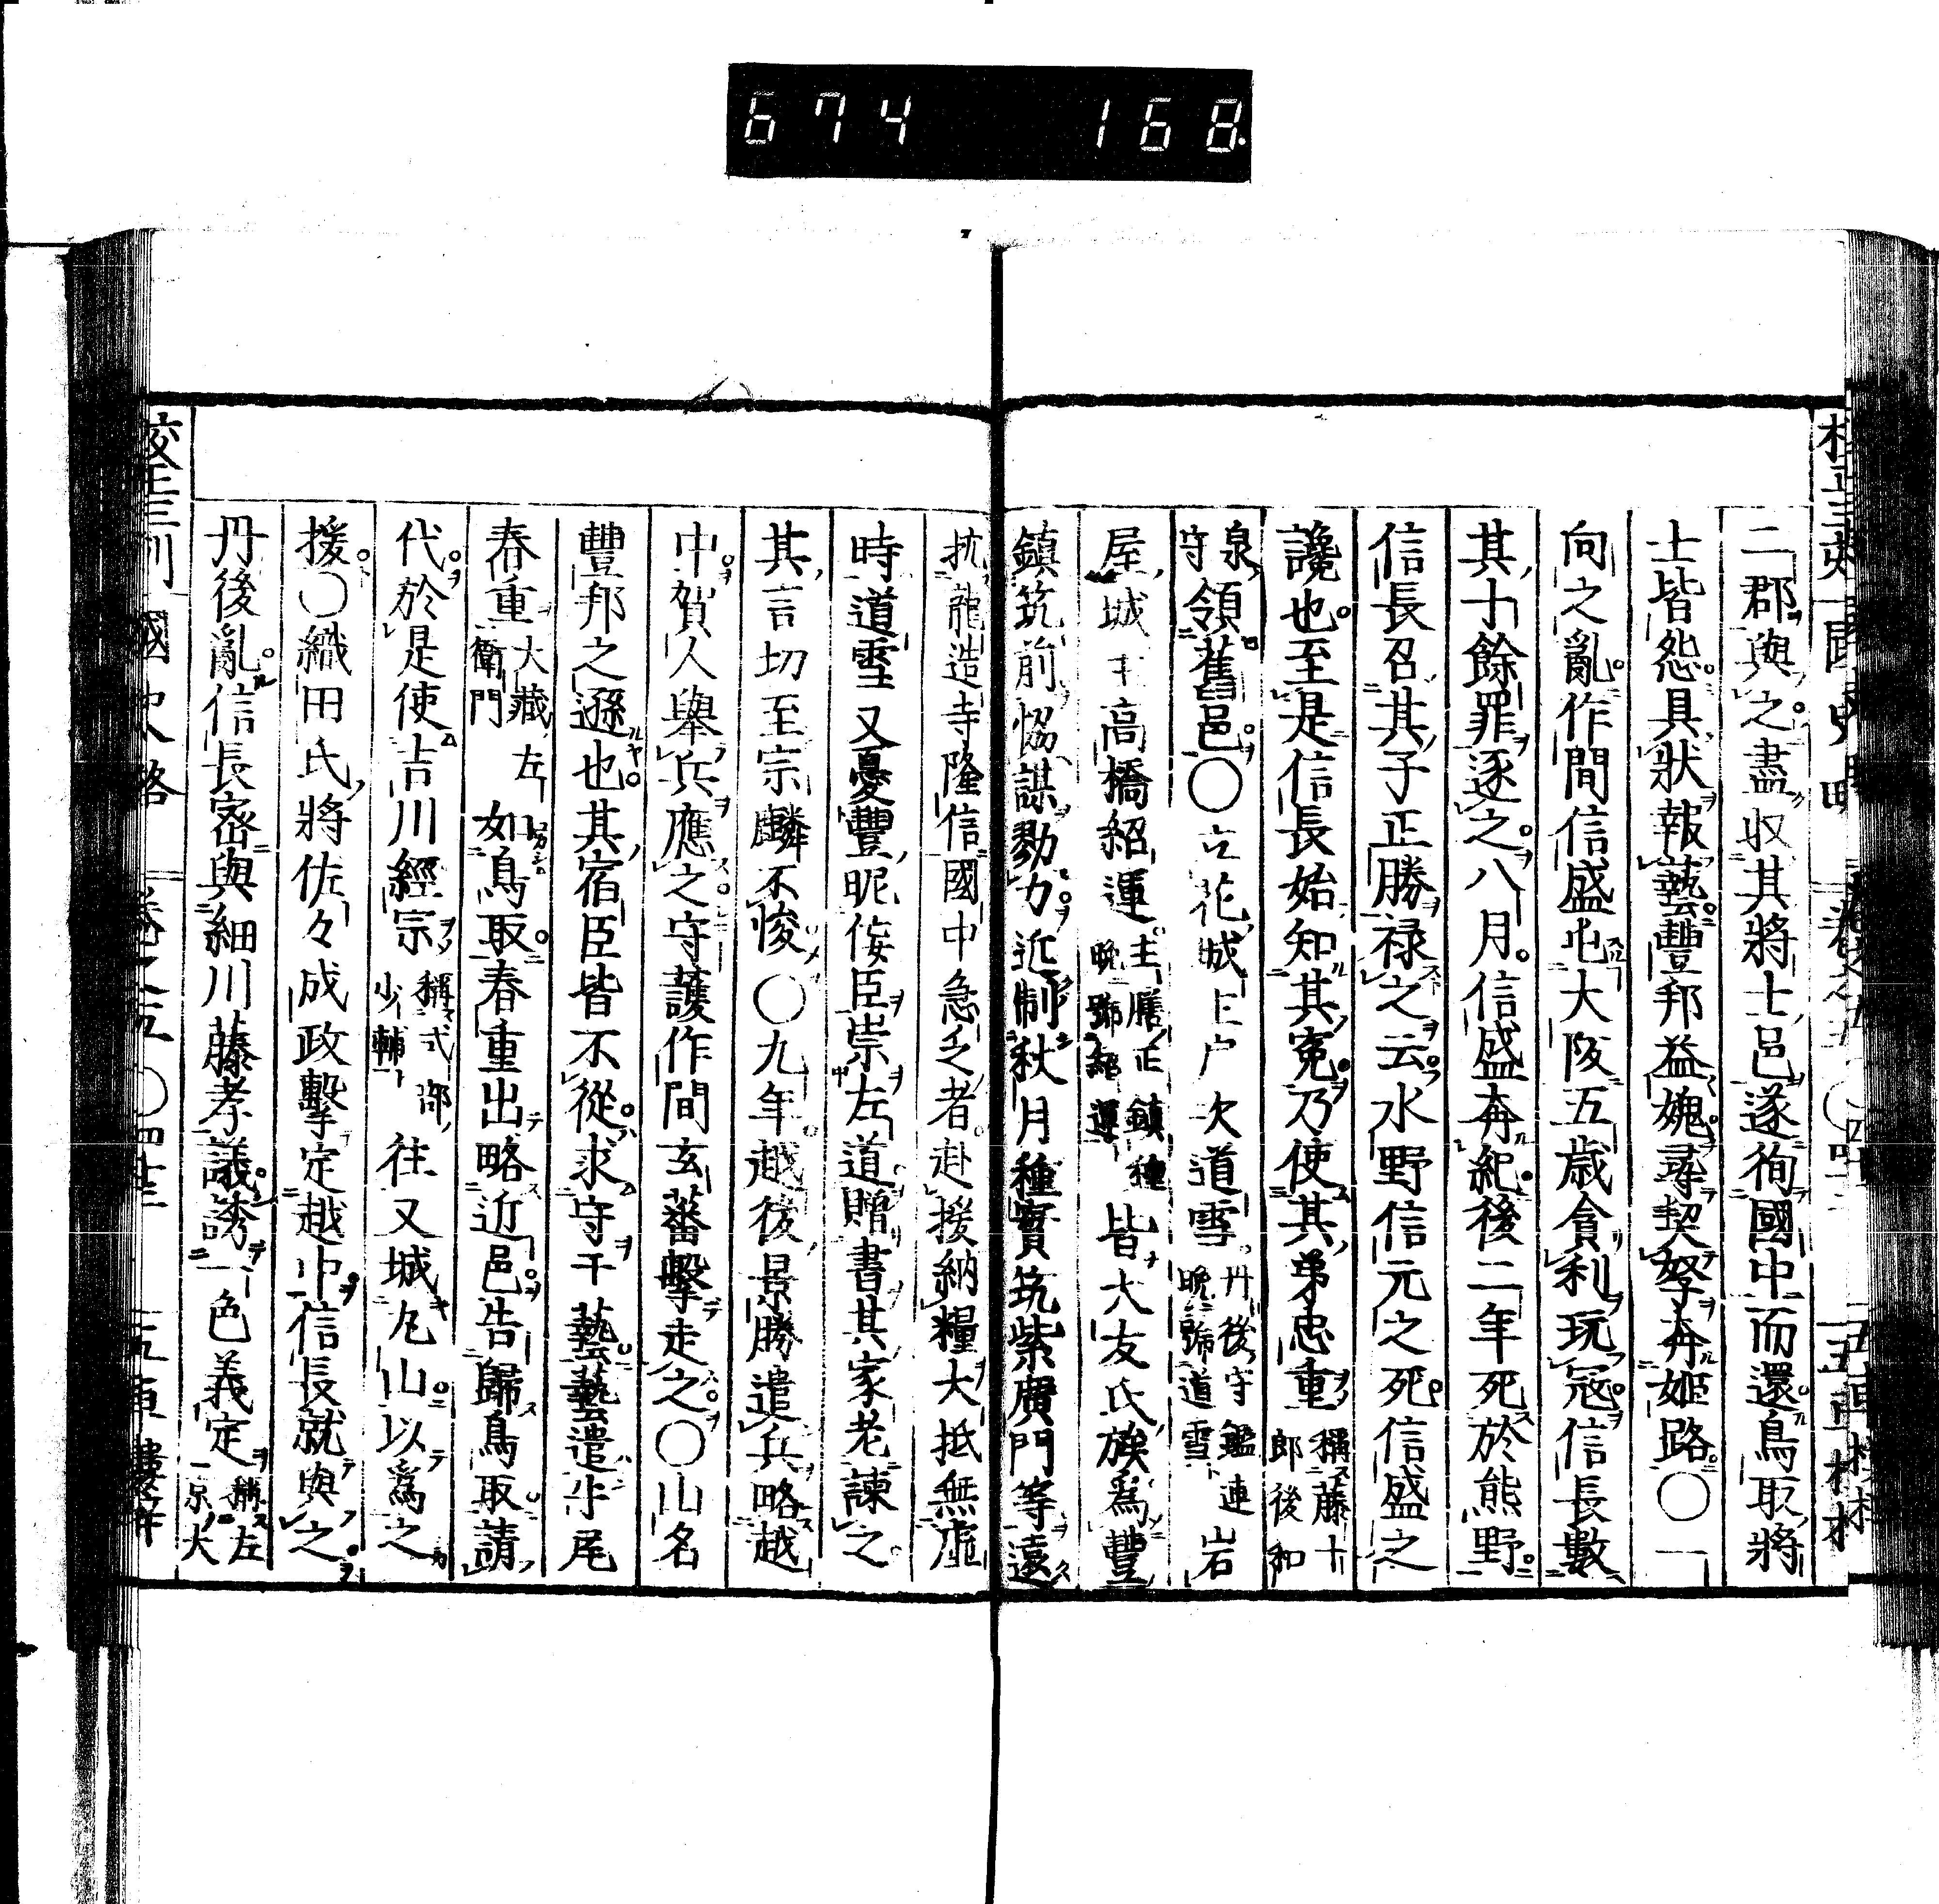 674 168
二郡與之盡收其將士邑遂徇國中而還鳥取將
士皆怨具狀報藝豐邦益媿尋契孥奔姬路〇一
向之亂作間信盛屯大阪五歲貪利玩寇信長數
其十餘罪逐之八月信盛奔紀後二年死於熊野
信長召其子正勝祿之云水野信元之死信盛之
讒也至是信長始知其寃乃使其弟忠重稱藤十郎後和
泉守領舊邑〇立花城主戶次道雪丹後守鑑連晚號道雪岩
屋城主高橋紹運主膳正鎮種晚號紹運皆大友氏族爲豐
鎮筑前恊謀勠力近制秋月種實筑紫廣門等遠
抗龍造寺隆信國中急乏者赴援納糧大抵無虛
時道雪又憂豐昵侫臣崇左道贈書其家老諫之
其言切至宗麟不悛〇九年越後景勝遣兵略越
中賀人舉兵應之守護作間玄蕃擊走之〇山名
豐邦之遜也其宿臣皆不從求守干藝藝遣牛尾
春重大藏左衛門如鳥取春重出略近邑告歸鳥取請
代於是使吉川經宗稱式部少輔往又城丸山以爲之
援〇織田氏將佐々成政擊定越中信長就與之
丹後亂信長密與細川藤孝議誘一色義定稱左京大
校正三刋國史略 卷之五〇四十三 五車樓梓